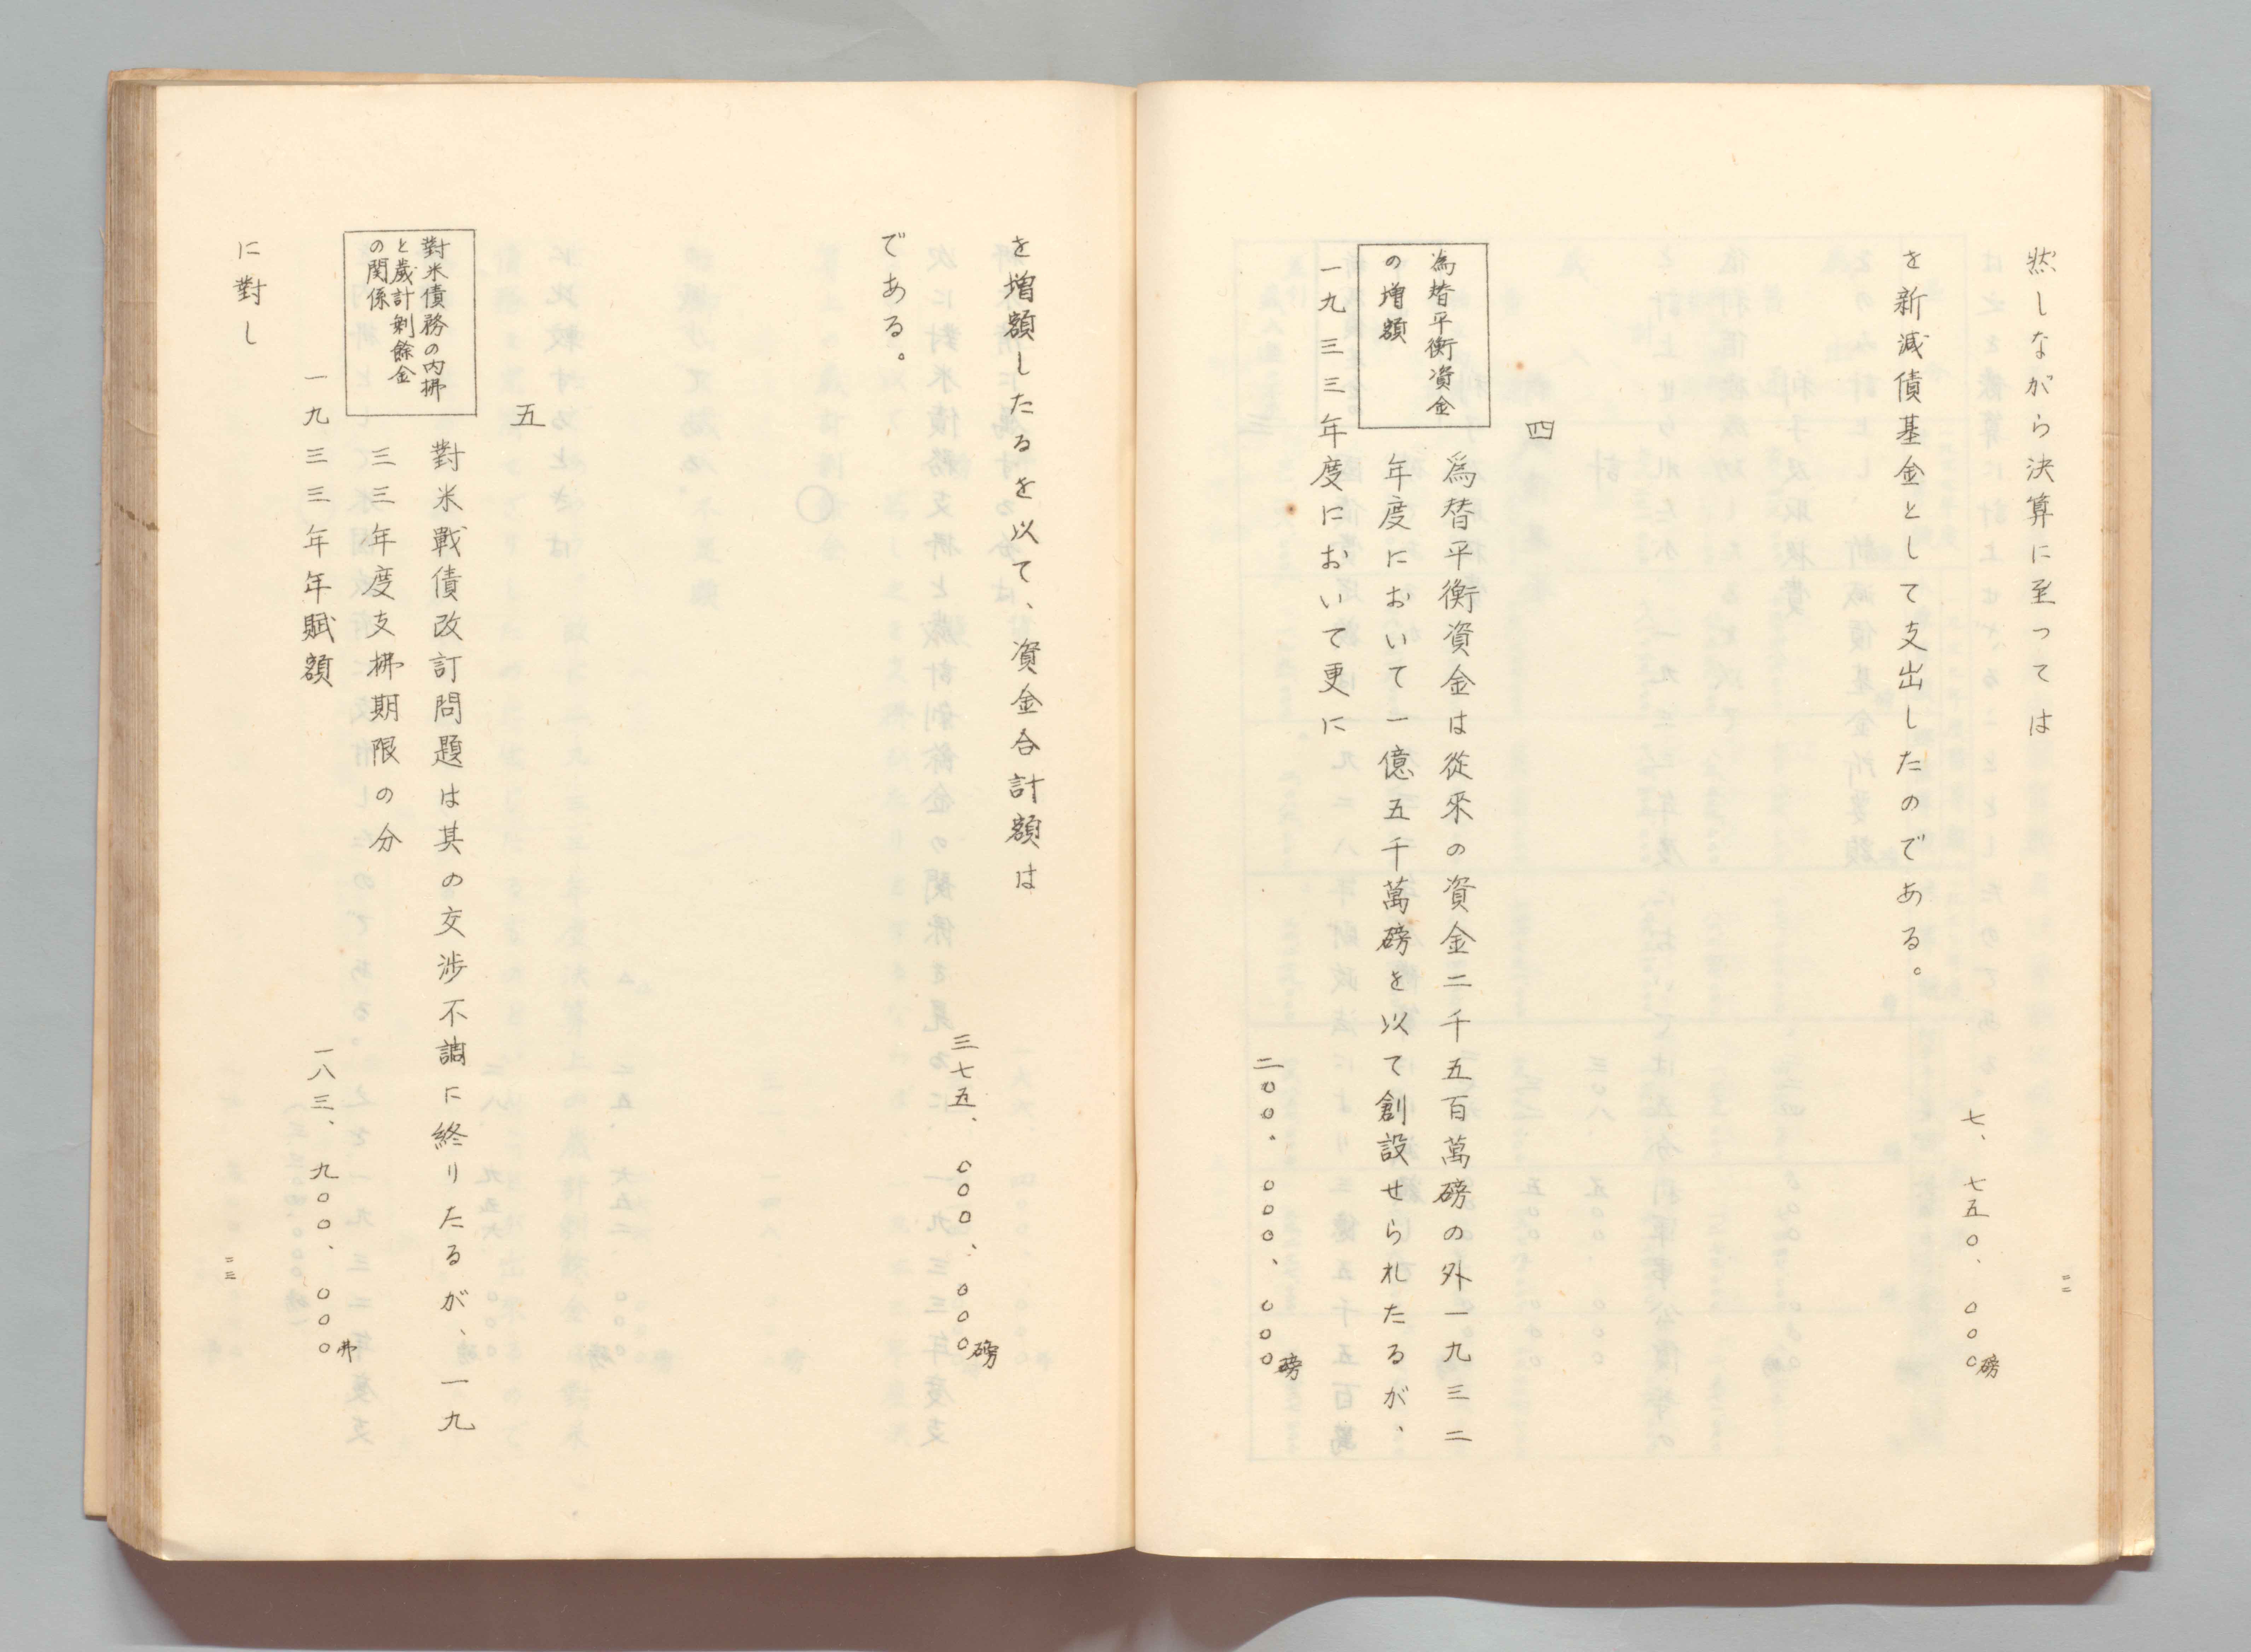 然しながら決算に至っては
七、七五〇、〇〇〇磅
を新減債基金として支出したのである。
四
為替平衡資金
の増額
爲替平衡資金は從來の資金二千五百萬磅の外一九三二
年度において一億五千萬磅を以て創設せられたるが、
一九三三年度において更に
二〇〇、〇〇〇、〇〇〇磅
二二
を増額したるを以て、資金合計額は
三七五、〇〇〇、〇〇〇磅
である。
五
對米債務の内拂
と歳計剰餘金
の関係
對米戰債改訂問題は其の交渉不調に終りたるが、一九
三三年度支拂期限の分
一九三三年年賦額
一八三、九〇〇、〇〇〇弗
に對し
二三